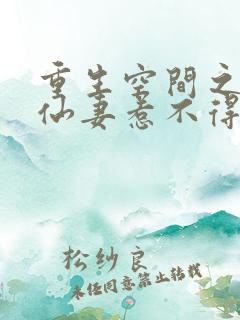 重生空間之
仙妻惹不得
松纱良
未经同意禁止转载